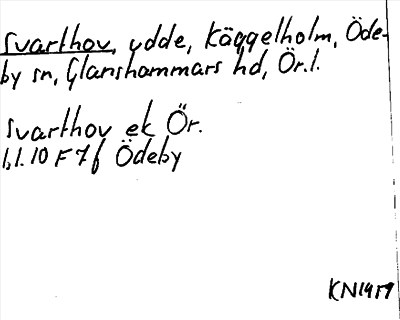 Svarthov, udde, Käggelholm, Öde-
by sn, Glanshammars hd, Ör.l.
Svarthov ek Ör.
bl. 10 F 7 f Ödeby
KN1959